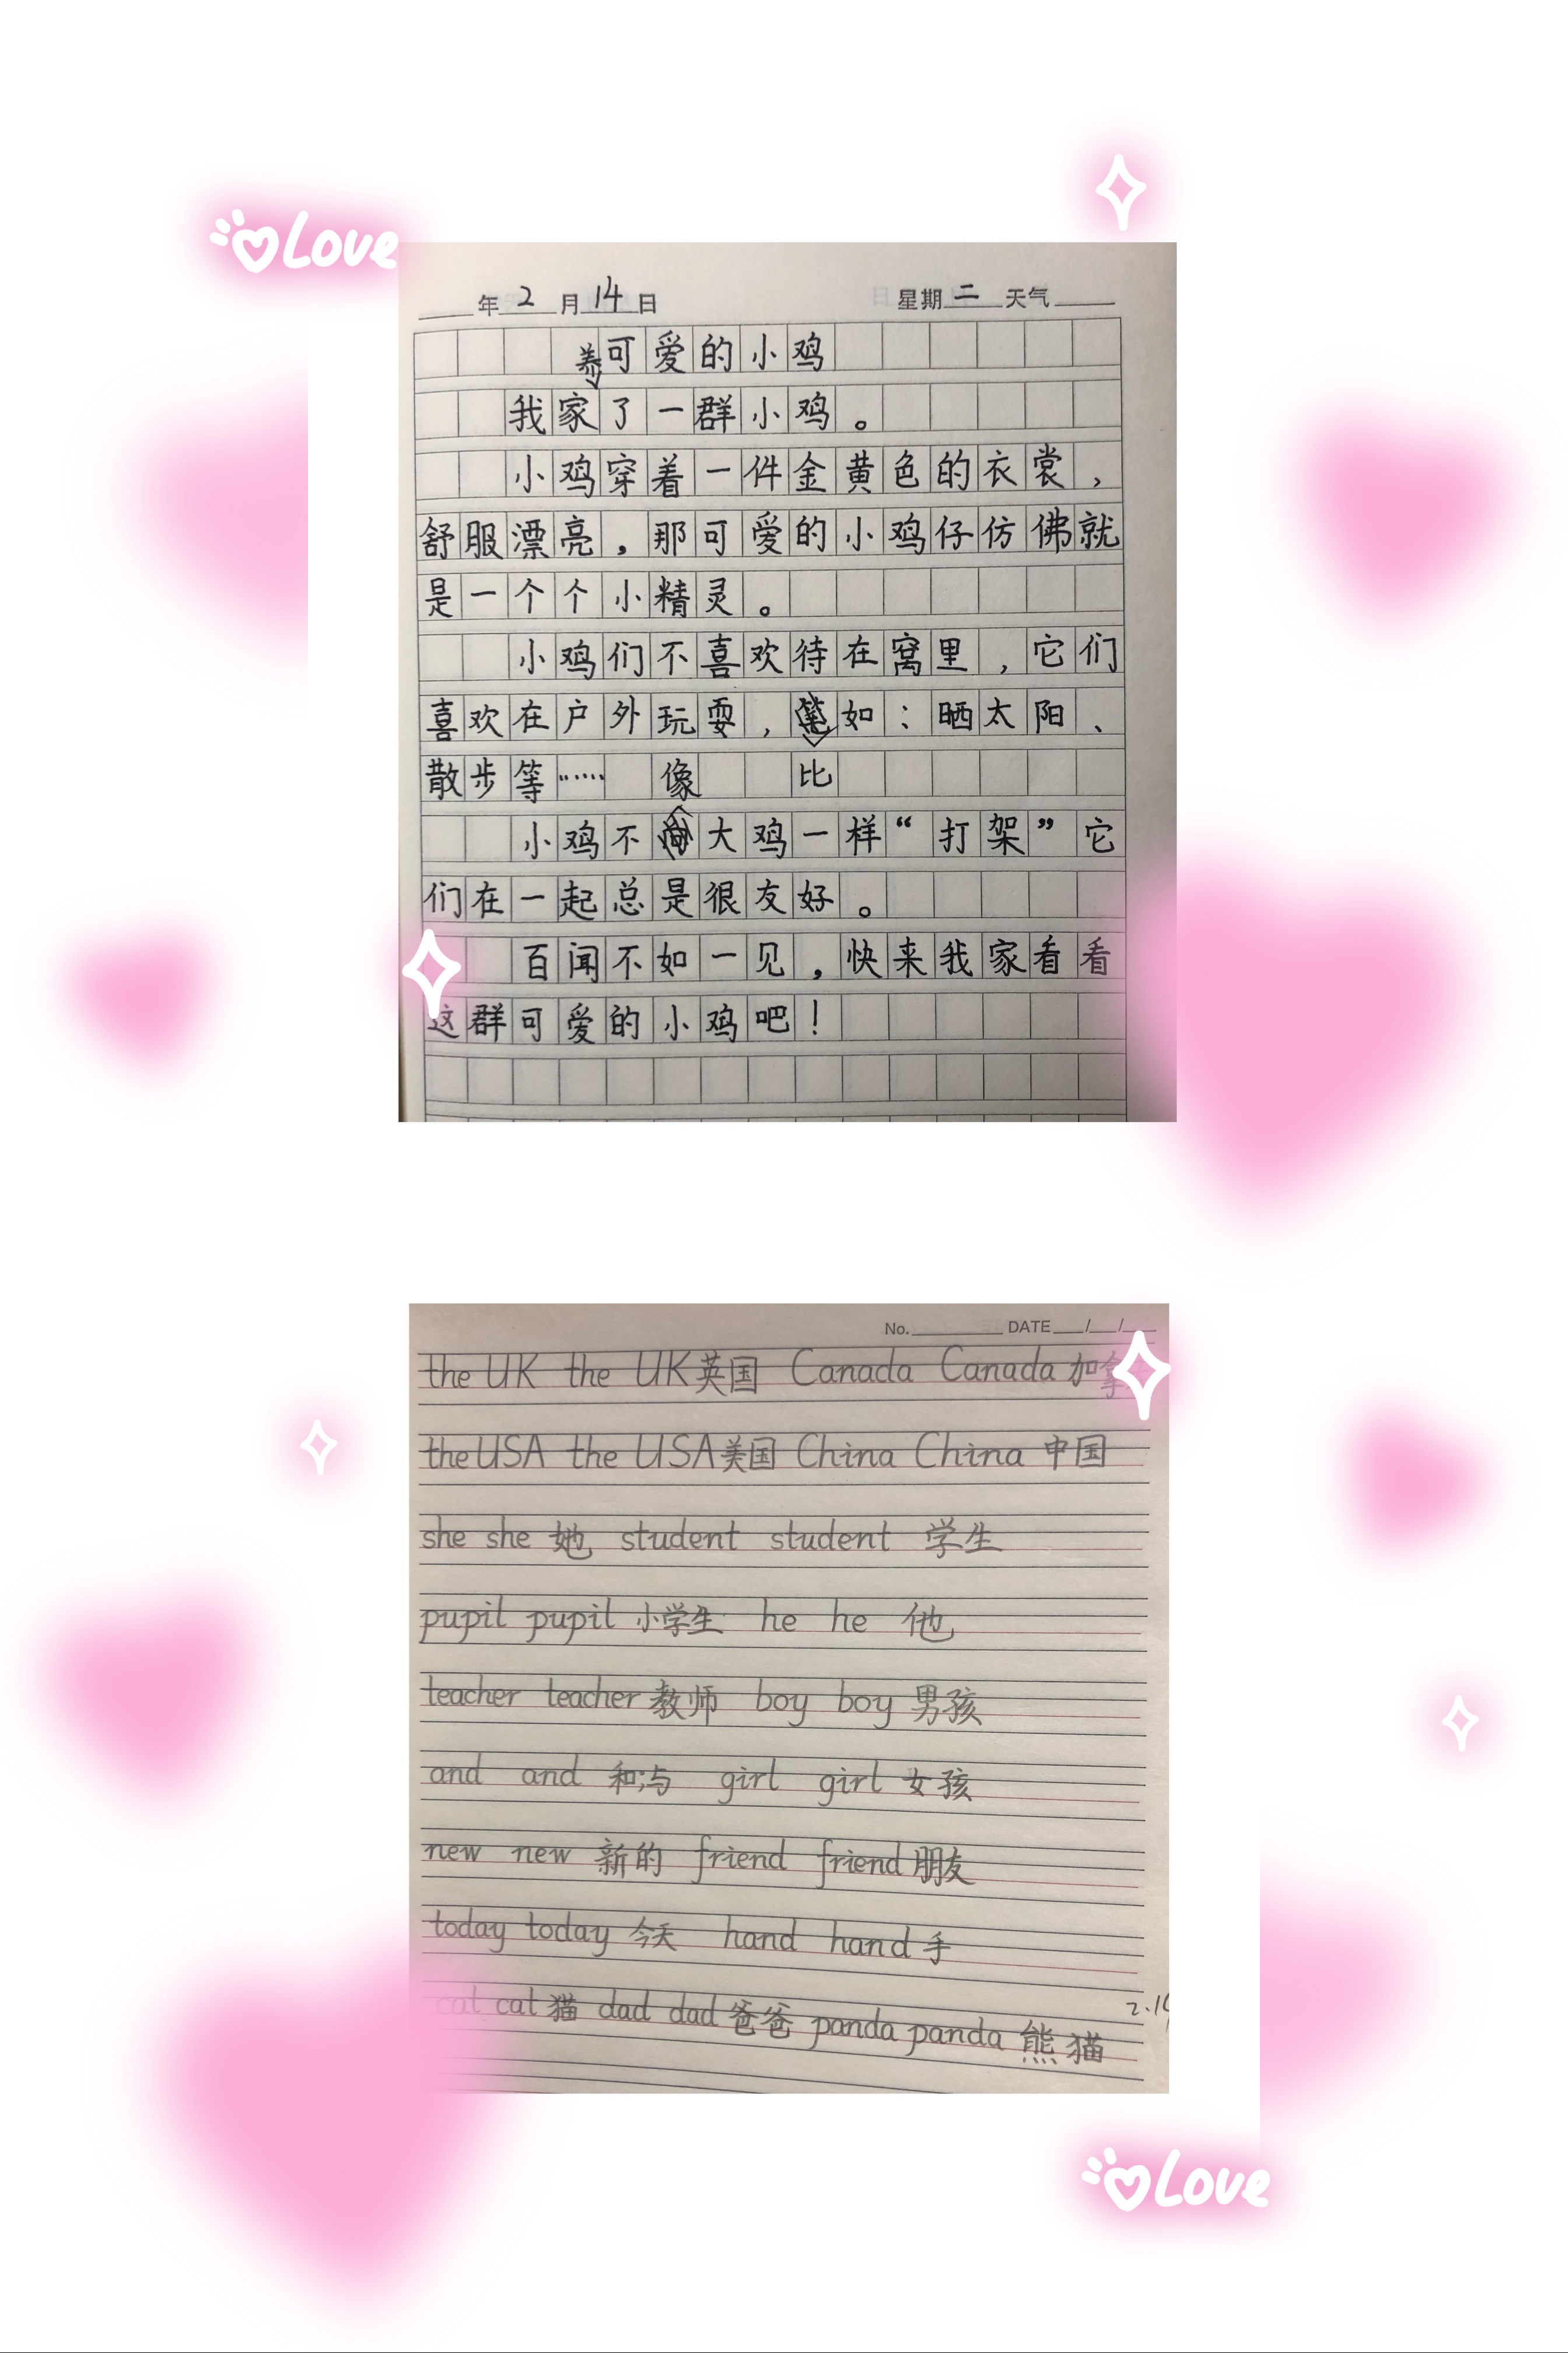 Love
年 2 月 14 日 星期 二 天气
可爱的小鸡
我家养了一群小鸡。
小鸡穿着一件金黄色的衣裳,
舒服漂亮,那可爱的小鸡仔仿佛就
是一个个小精灵。
小鸡们不喜欢待在窝里,它们
喜欢在户外玩耍,比如:晒太阳、
散步等……
小鸡不像大鸡一样“打架”它
们在一起总是很友好。
百闻不如一见,快来我家看看
这群可爱的小鸡吧!
No. DATE / /
the UK the UK 英国 Canada Canada 加拿
the USA the USA 美国 China China 中国
she she 她 student student 学生
pupil pupil 小学生 he he 他
teacher teacher 教师 boy boy 男孩
and and 和;与 girl girl 女孩
new new 新的 friend friend 朋友
today today 今天 hand hand 手
cat cat 猫 dad dad 爸爸 panda panda 熊猫
Love